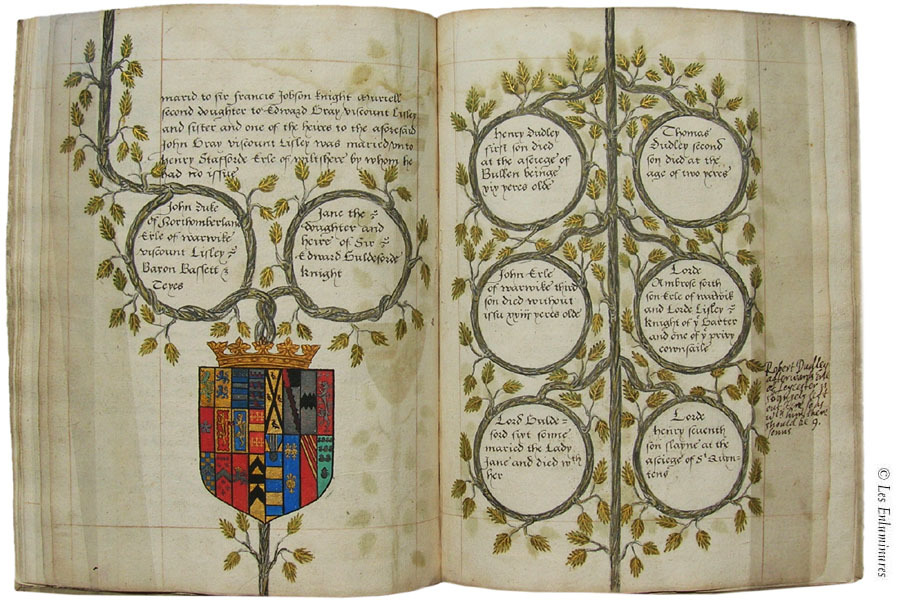 marid to sir francis Jobson knight Murriell
second doughter to Edward Gray viscount Lisley
and sister and one of the heires to the aforesaid
John Gray viscount Lisley was maried unto
Henry Stafforde Erle of wilshere by whom he
had no issue
John Duke
of Northomberland
Erle of warwike
viscount Lisley
Baron Bassett &
Teyes
Jane the
doughter and
heire of Sir
Edward Guldeforde
knight
Henry Dudley
first son died
at the asciege of
Bullen beinge
xix yeres olde
Thomas
Dudley second
son died at the
age of two yeres
John Erle
of warwike third
son died without
issu xxiiij yeres olde
Lorde
Ambrose forth
son Erle of warwik
and Lorde Lisley
knight of ye Garter
and one of ye privy
cownsaile
Lord Gulde=
ford sixt sonne
maried the Lady
Jane and died wth
her
Lorde
henry seuenth
son slayne at the
asciege of St Quin=
tens
Robert Dudley
afterwards
of Leycester is
left
out
with him there
should be 9.
sonns
© Les Enluminures